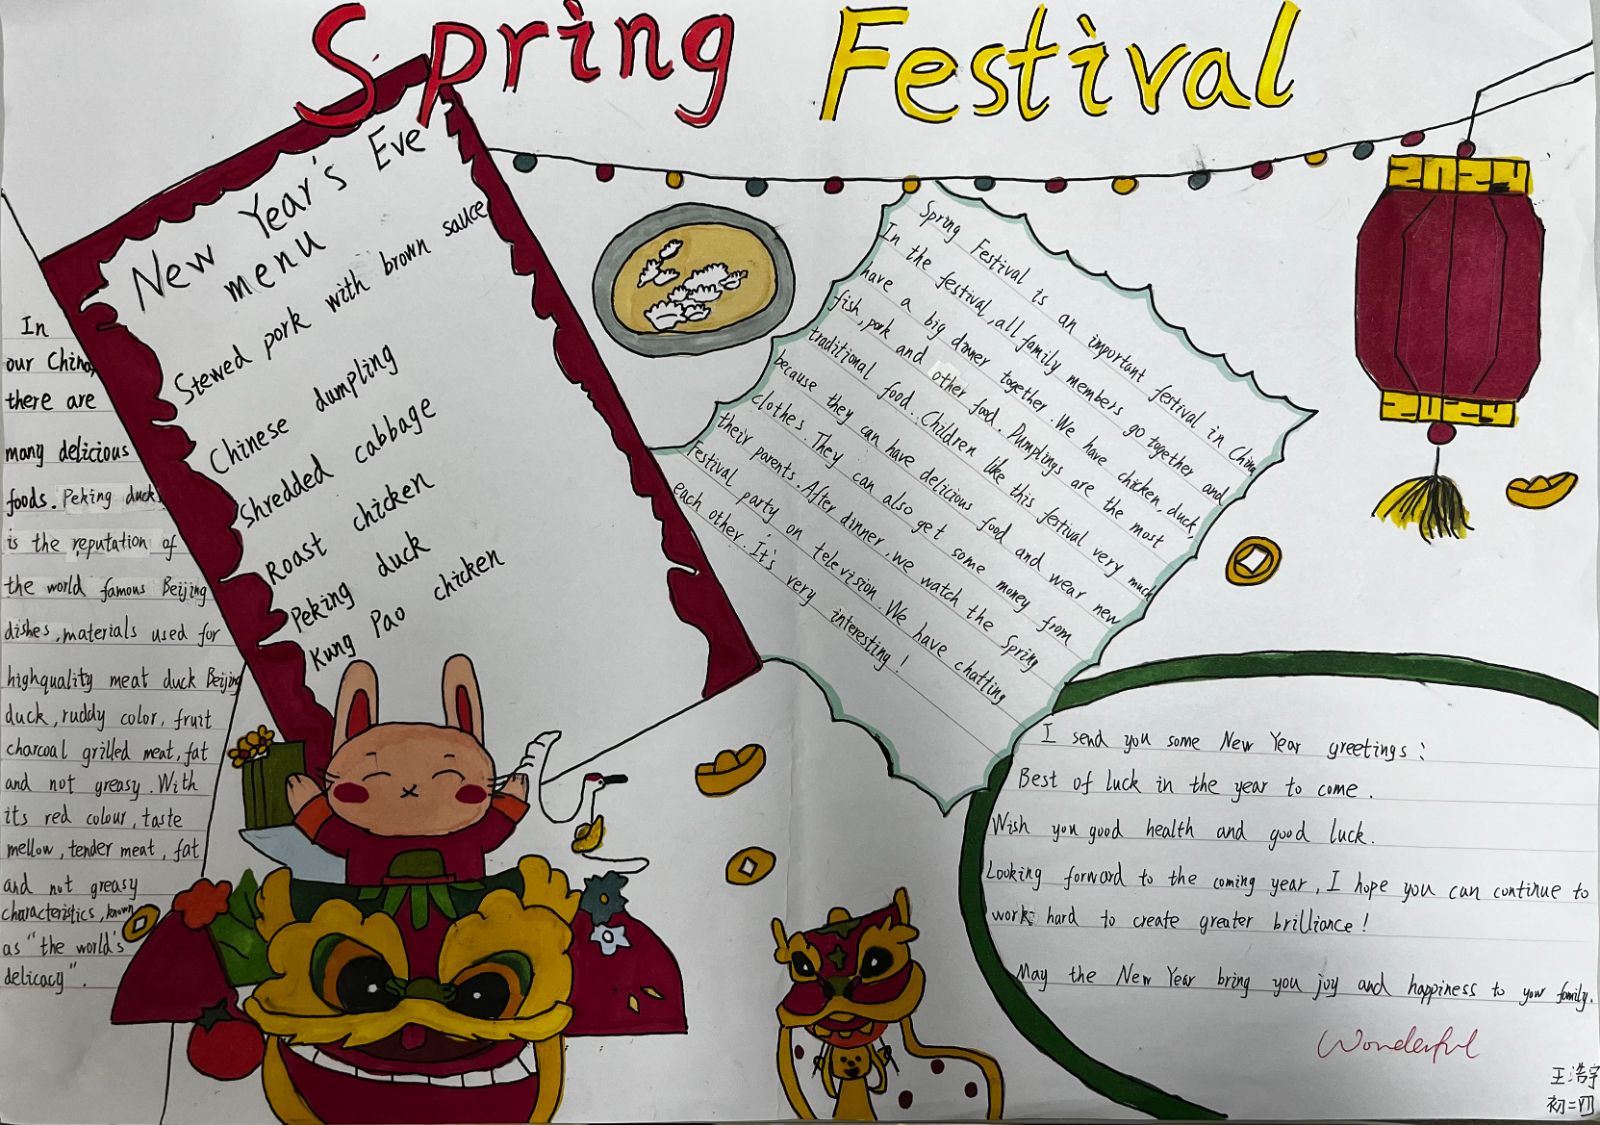 Spring Festival
New Year's Eve
menu
Stewed pork with brown sauce
Chinese dumpling
Shredded cabbage
Roast chicken
Peking duck
Kung Pao chicken
In
our China,
there are
many delicious
foods. Peking duck
is the reputation of
the world famous Beijing
dishes, materials used for
highquality meat duck Beijing
duck, ruddy color, fruit
charcoal grilled meat, fat
and not greasy. With
its red colour, taste
mellow, tender meat, fat
and not greasy
characteristics, known
as "the world's
delicacy".
Spring Festival is an important festival in China
In the festival, all family members go together and
have a big dinner together. We have chicken, duck,
fish, pork and other food. Dumplings are the most
traditional food. Children like this festival very much
because they can have delicious food and wear new
clothes. They can also get some money from
their parents. After dinner, we watch the Spring
Festival party on television. We have chatting
each other. It's very interesting!
2024
2024
I send you some New Year greetings:
Best of luck in the year to come.
Wish you good health and good luck.
Looking forward to the coming year, I hope you can continue to
work hard to create greater brilliance!
May the New Year bring you joy and happiness to your family.
Wonderful
王浩宇
初二四